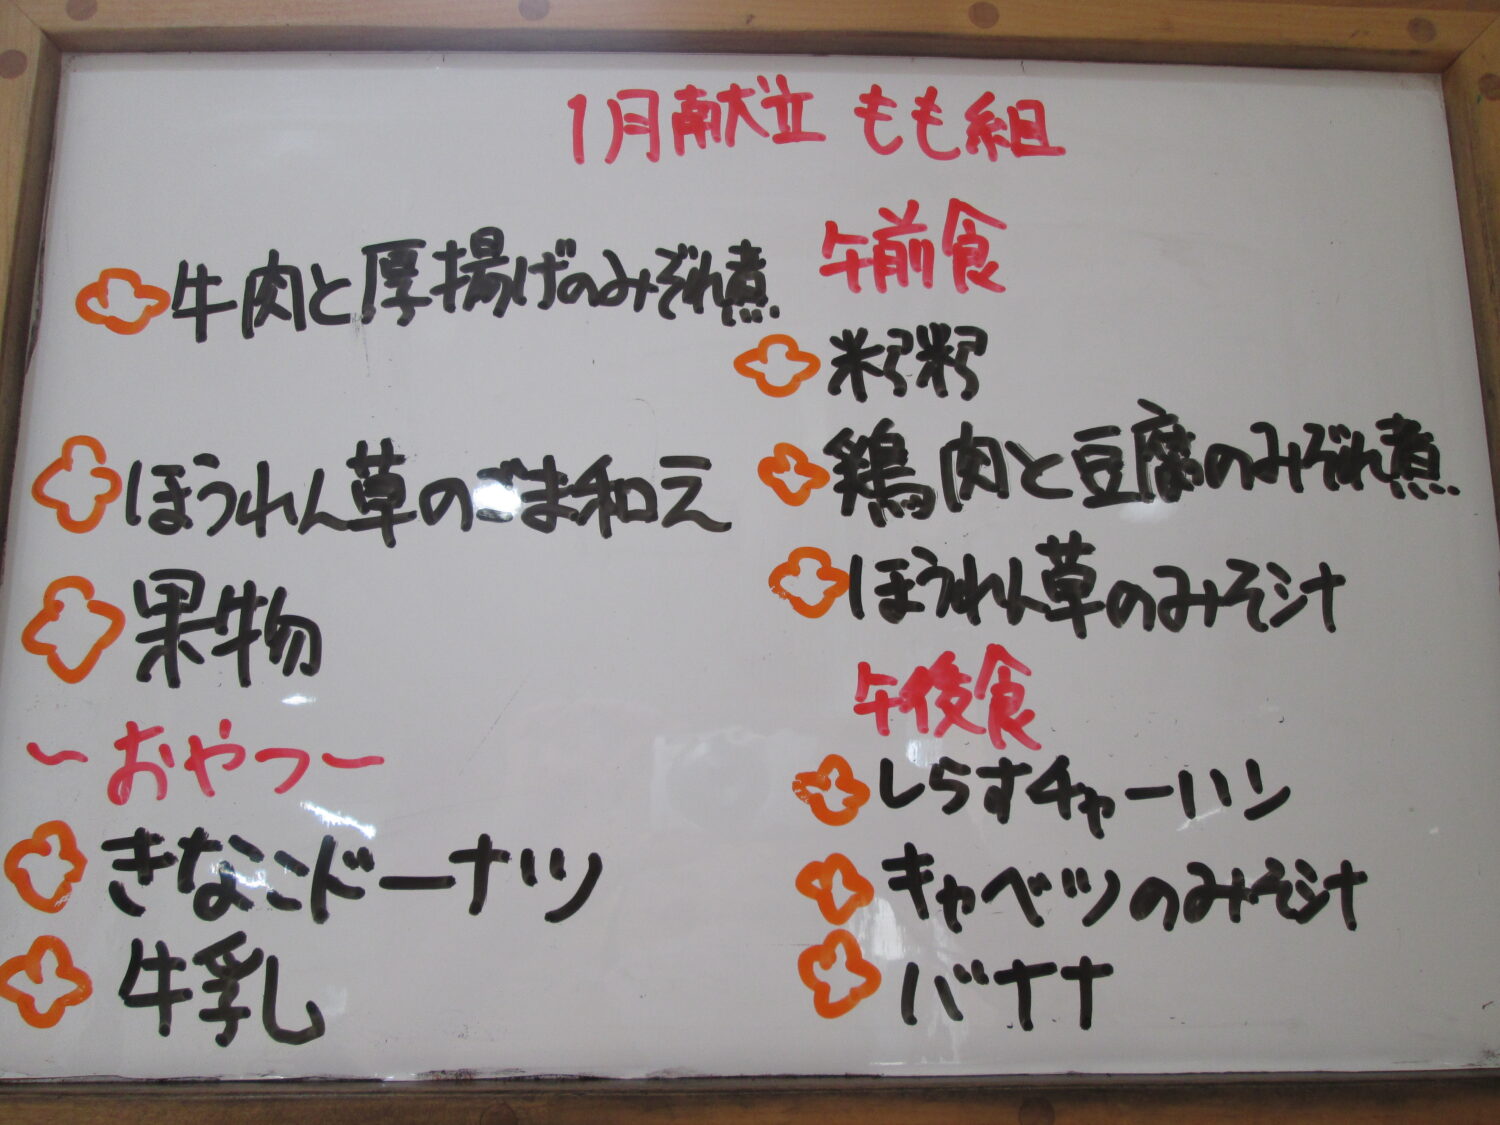 1月献立 もも組
牛肉と厚揚げのみぞれ煮
ほうれん草のごま和え
果物
～おやつ～
きなこドーナツ
牛乳
午前食
米粥粥
鶏肉と豆腐のみぞれ煮
ほうれん草のみそ汁
午後食
しらすチャーハン
キャベツのみそ汁
バナナ